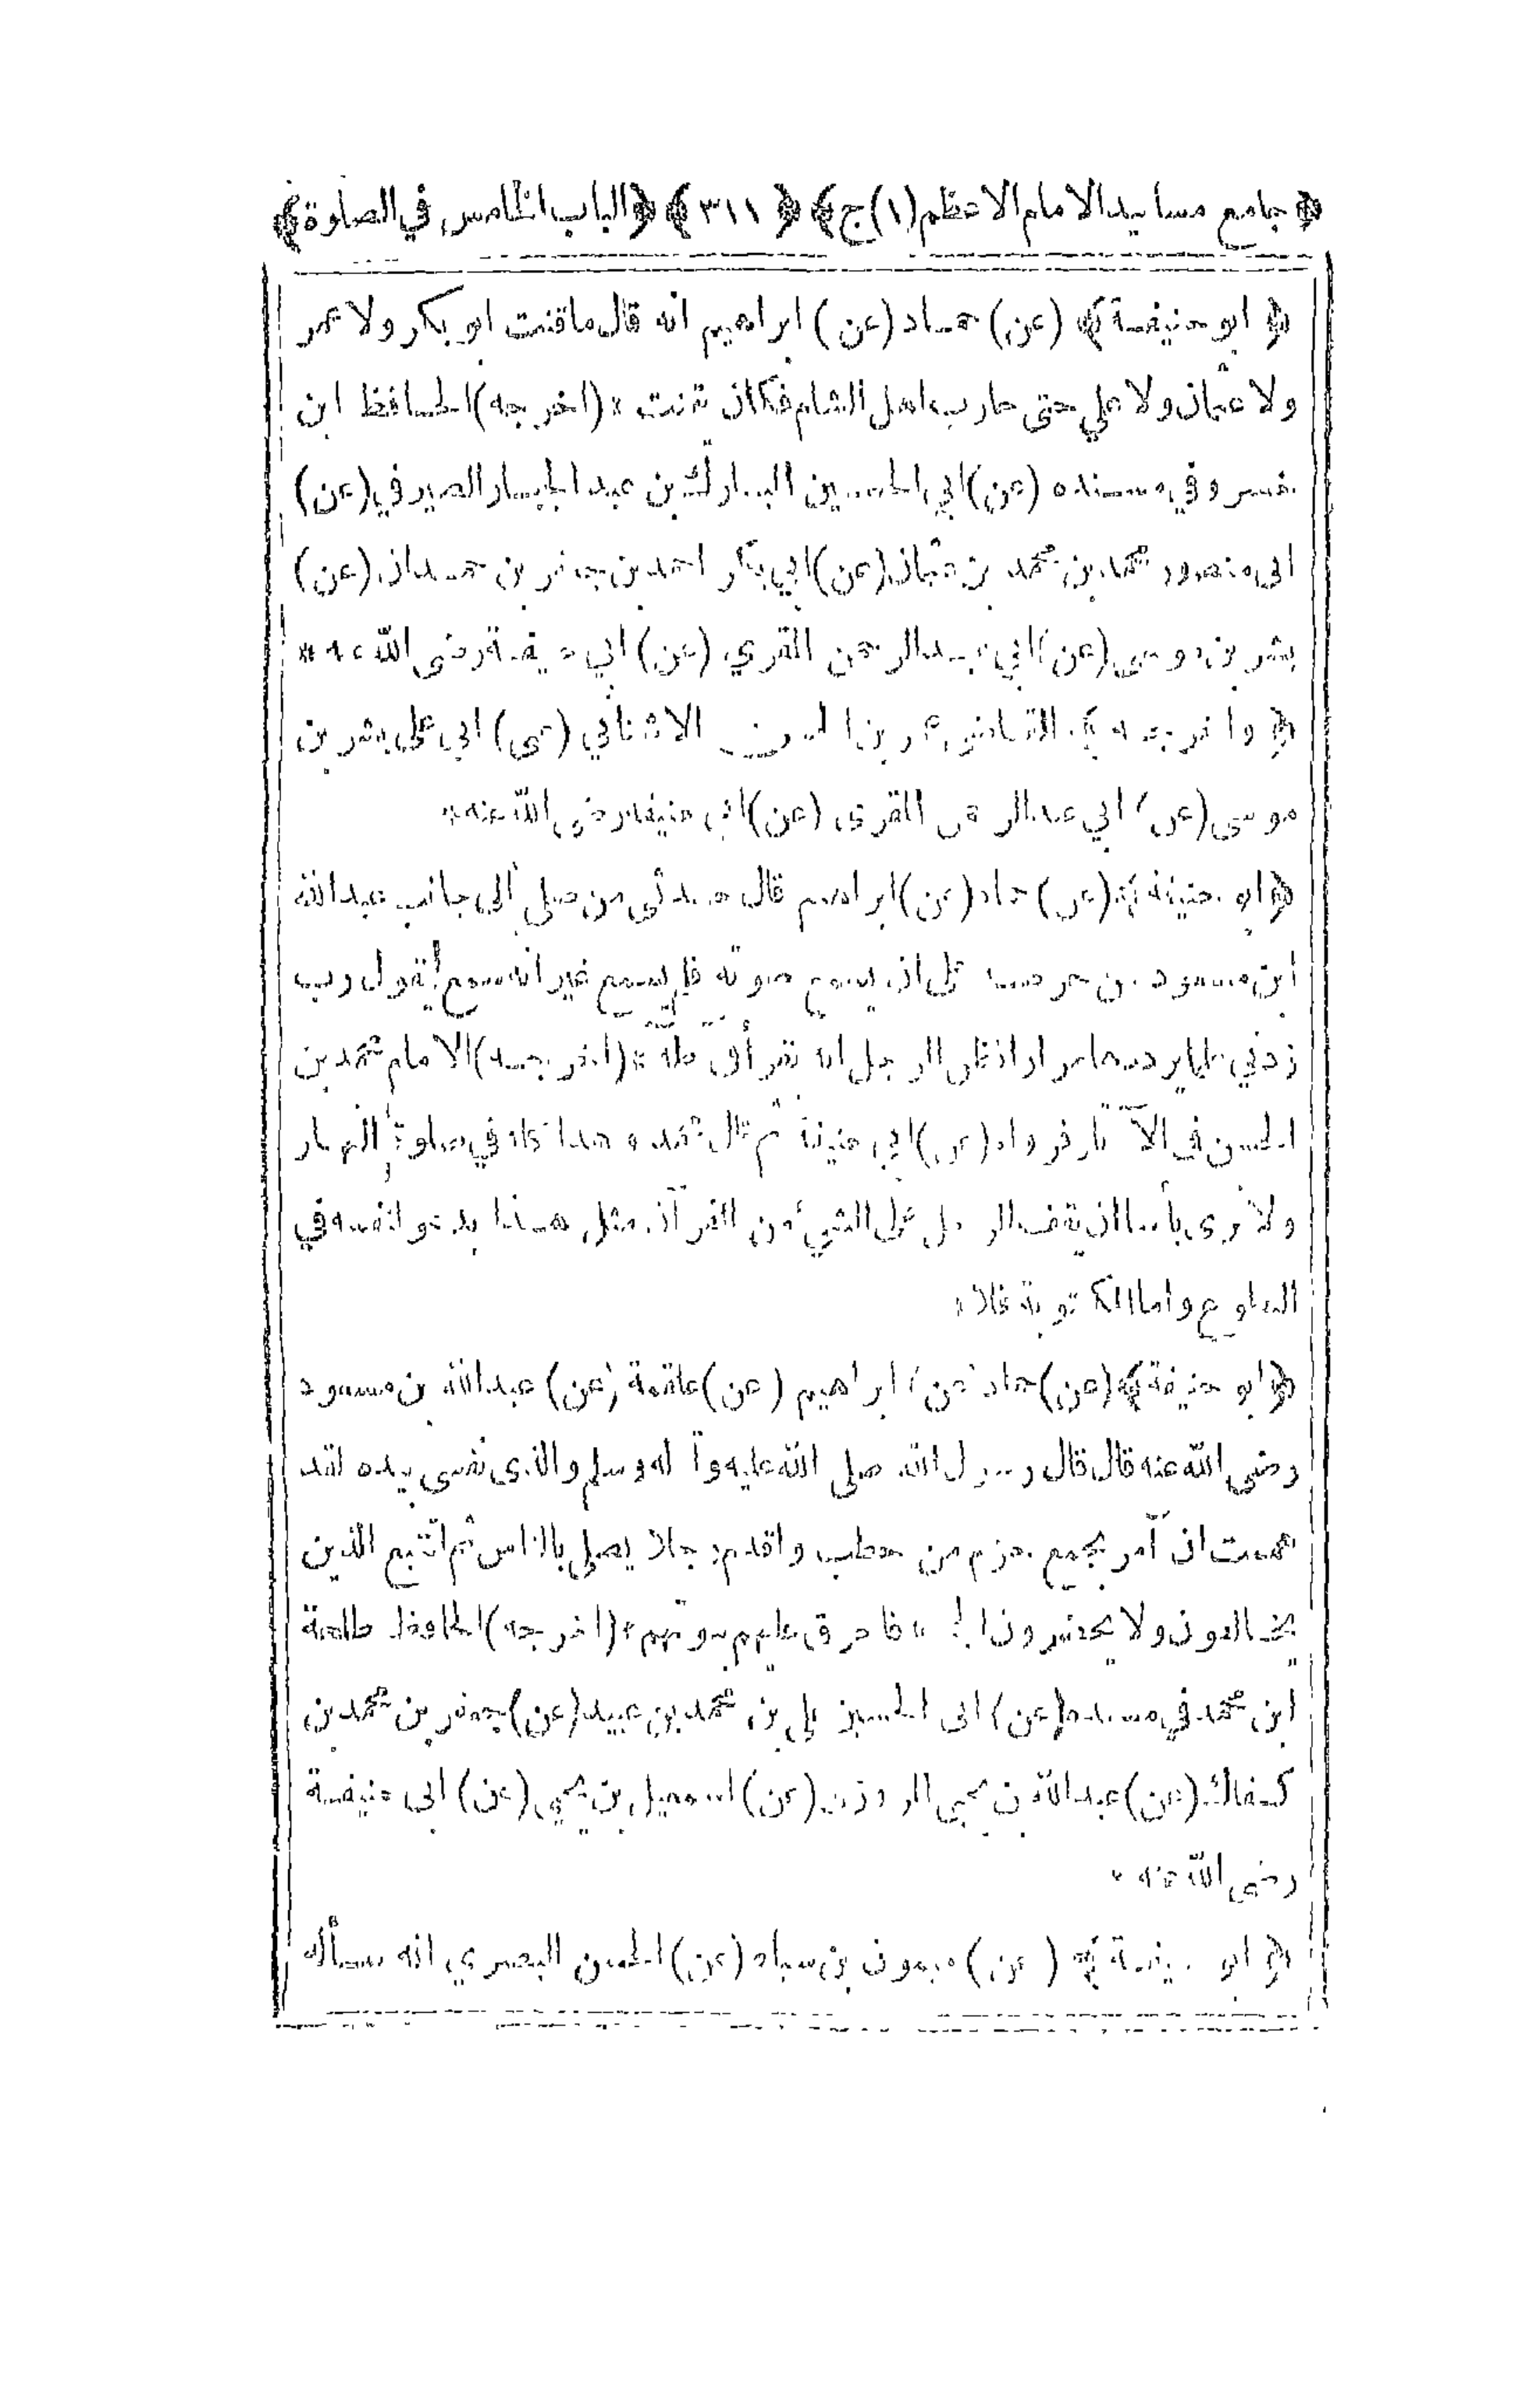 ﴿ جامع مسانيد الامام الاعظم (١) ج ﴾ ﴿ ٣١١ ﴾ ﴿ الباب الخامس في الصلوة ﴾
﴿ ابو حنيفة ﴾ (عن) حماد (عن) ابراهيم انه قال ما قنت ابو بكر ولا عمر
ولا عثمان ولا علي حتى حارب اهل الشام فكان يقنت * (اخرجه) الحافظ ابن
خسرو في مسنده (عن) ابي الحسين المبارك بن عبد الجبار الصيرفي (عن)
ابى منصور محمد بن محمد بن عثمان (عن) ابي بكر احمد بن جعفر بن حمدان (عن)
بشر بن موسى (عن) ابي عبد الرحمن المقري (عن) ابي حنيفة رضى الله عنه *
﴿ واخرجه ﴾ القاضي عمر بن الحسن الاشناني (عن) ابى على بشر بن
موسى (عن) ابي عبد الرحمن المقرى (عن) ابي حنيفة رضى الله عنه *
﴿ ابو حنيفة ﴾ (عن) حماد (عن) ابراهيم قال حدثنى من صلى الى جانب عبد الله
ابن مسعود حرص على ان يسمع صوته فلم يسمع غير انه سمعه يقول رب
زدني علما يرددها مرارا فظن الرجل انه يقرأ في طه * (اخرجه) الامام محمد بن
الحسن فى الآثار فرواه (عن) ابي حنيفة ثم قال محمد هذا كله في صلوة النهار
ولا نرى بأسا ان يقف الرجل على الشيء من القرآن مثل هذا يدعو لنفسه في
التطوع واما المكتوبة فلا *
﴿ ابو حنيفة ﴾ (عن) حماد (عن) ابراهيم (عن) علقمة (عن) عبد الله بن مسعود
رضى الله عنه قال قال رسول الله صلى الله عليه وآله وسلم والذى نفسى بيده لقد
هممت ان آمر بجمع حزم من حطب واقدم رجلا يصلي بالناس ثم اتتبع الذين
يخالفون ولا يحضرون * فاحرق عليهم بيوتهم * (اخرجه) الحافظ طلحة
ابن محمد في مسنده (عن) ابى الحسين علي بن محمد بن عبيد (عن) جعفر بن محمد بن
(عن) عبد الله بن يحيى (عن) اسمعيل بن يحيى (عن) ابى حنيفة
رضى الله عنه *
﴿ ابو حنيفة ﴾ (عن) ميمون بن سياه (عن) الحسن البصري انه سأله